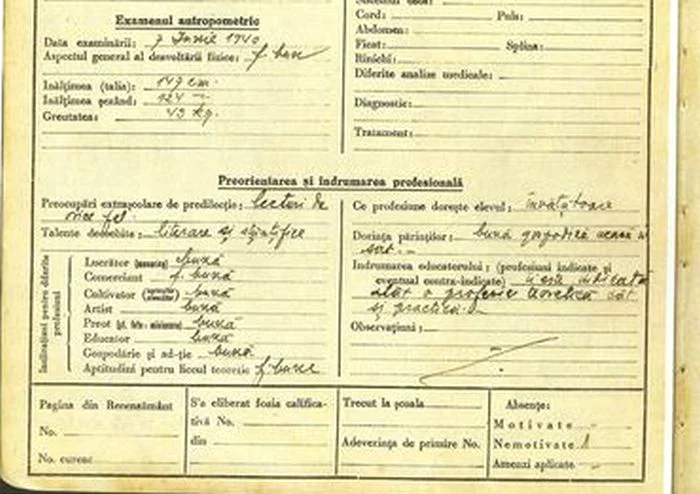 Examenul antropometric
Data examinării: 7 Iunie 1940
Aspectul general al desvoltării fizice: f. bun
Inălțimea (talia): 149 cm.
Inălțimea șezând: 124
Greutatea: 43 kg.
Cord: Puls:
Abdomen:
Ficat: Splina:
Rinichi:
Diferite analize medicale:
Diagnostic:
Tratament:
Preorientarea și îndrumarea profesională
Preocupări extrașcolare de predilecție: lecturi de
orice fel.
Talente deosebite: literare și științifice
Indicațiuni pentru diferite profesiuni
Lucrător bună
Comerciant f. bună
Cultivator bună
Artist bună
Preot bună
Educator bună
Gospodărie și ad-ție bună
Aptitudini pentru liceul teoretic f. bune
Ce profesiune dorește elevul: învățătoare
Dorința părinților: bună gospodină acasă la
sat.
Indrumarea educatorului: (profesiuni indicate și
eventual contra-indicate) îi este indicată
atât o profesie teoretică cât
și practică.
Observațiuni:
Pagina din Recensământ
No.
No. curent
S'a eliberat foaia califica-
tivă No.
din
Trecut la școala
Adeverința de primire No.
Absențe:
Motivate -
Nemotivate 1
Amenzi aplicate -